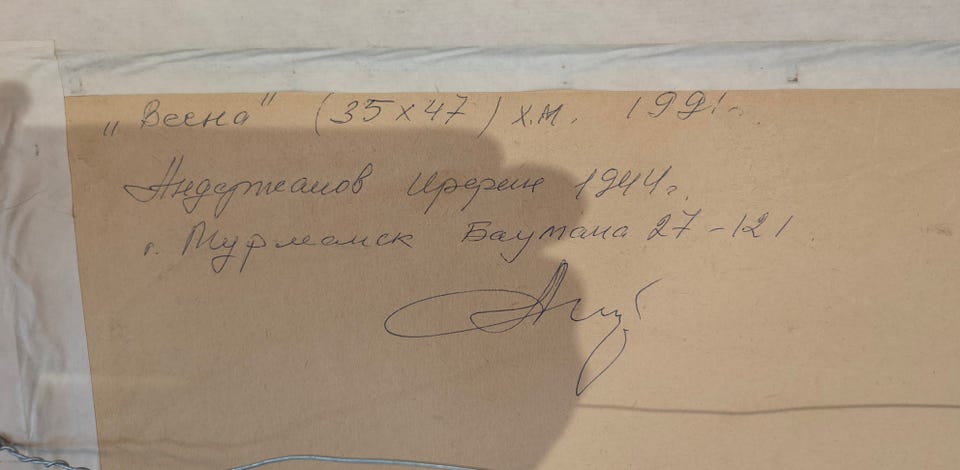 „Весна" (35 х 47) х.м. 1991г.
Андержанов Ирфан 1944г.
г. Мурманск Баумана 27-121